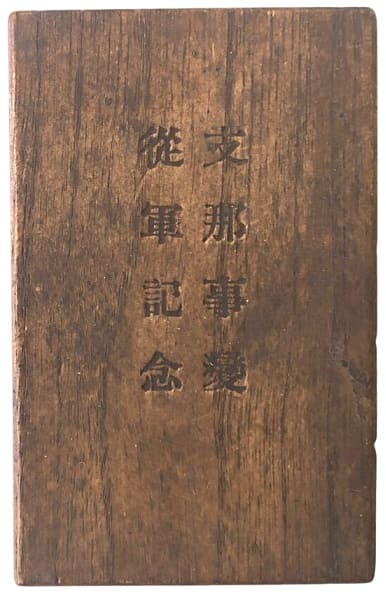 支那事變
從軍記念